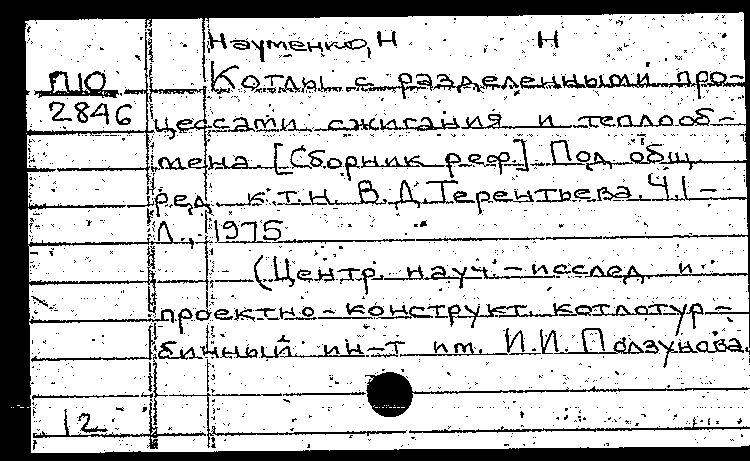 Науменко, Н Н
П10 Котлы с разделенными про-
2846 цессами сжигания и теплооб-
мена. [Сборник реф.] Под общ.
ред. к.т.н. В.Д.Терентьева. Ч.1-
Л., 1975
(Центр. науч.-исслед и
проектно-конструкт. котлотур-
бинный ин-т им. И.И. Ползунова.
12